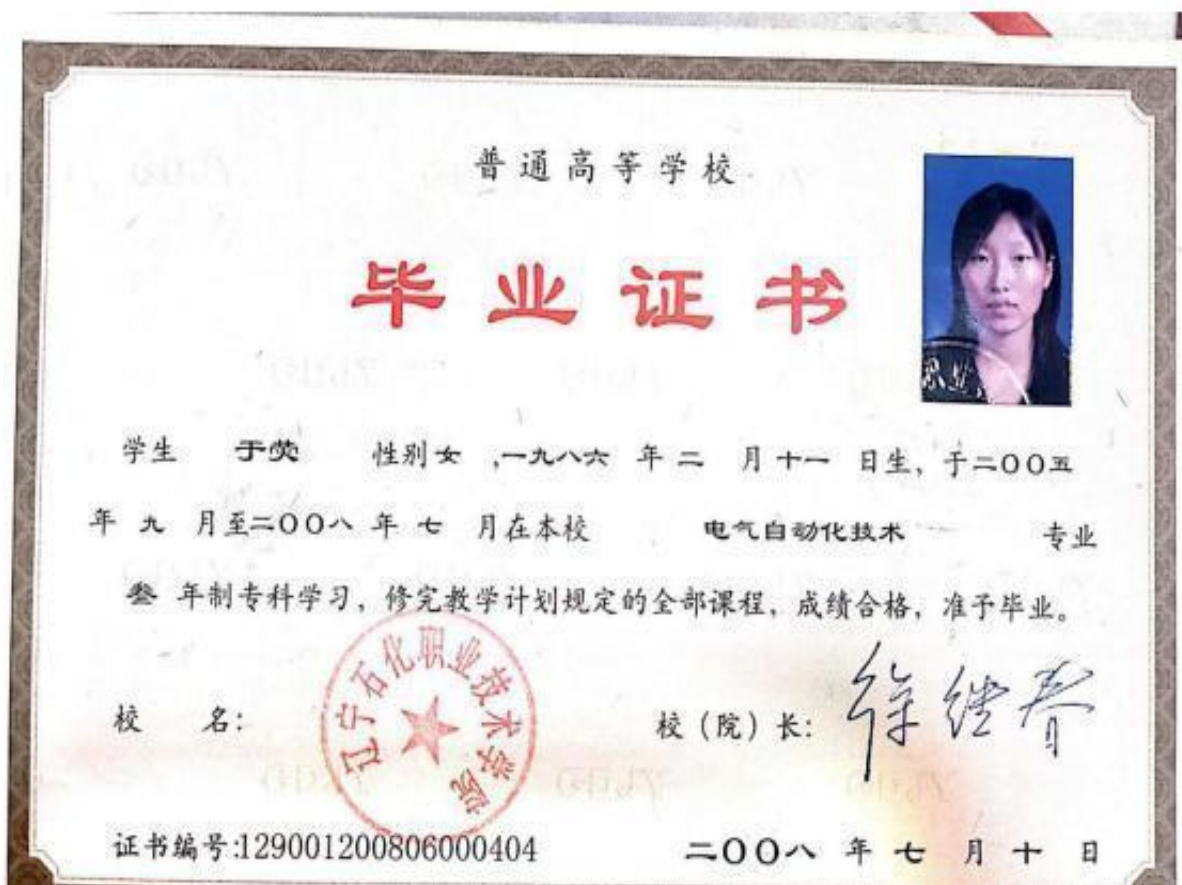 普通高等学校
毕业证书
学生 于荧 性别女,一九八六 年 二 月十一 日生, 于二00五
年 九 月至二00八 年 七 月在本校 电气自动化技术 专业
叁 年制专科学习, 修完教学计划规定的全部课程, 成绩合格, 准予毕业。
辽宁石化职业技术学院
校 名:
校 (院) 长: 徐继春
证书编号:129001200806000404
二00八 年 七 月 十 日
职业